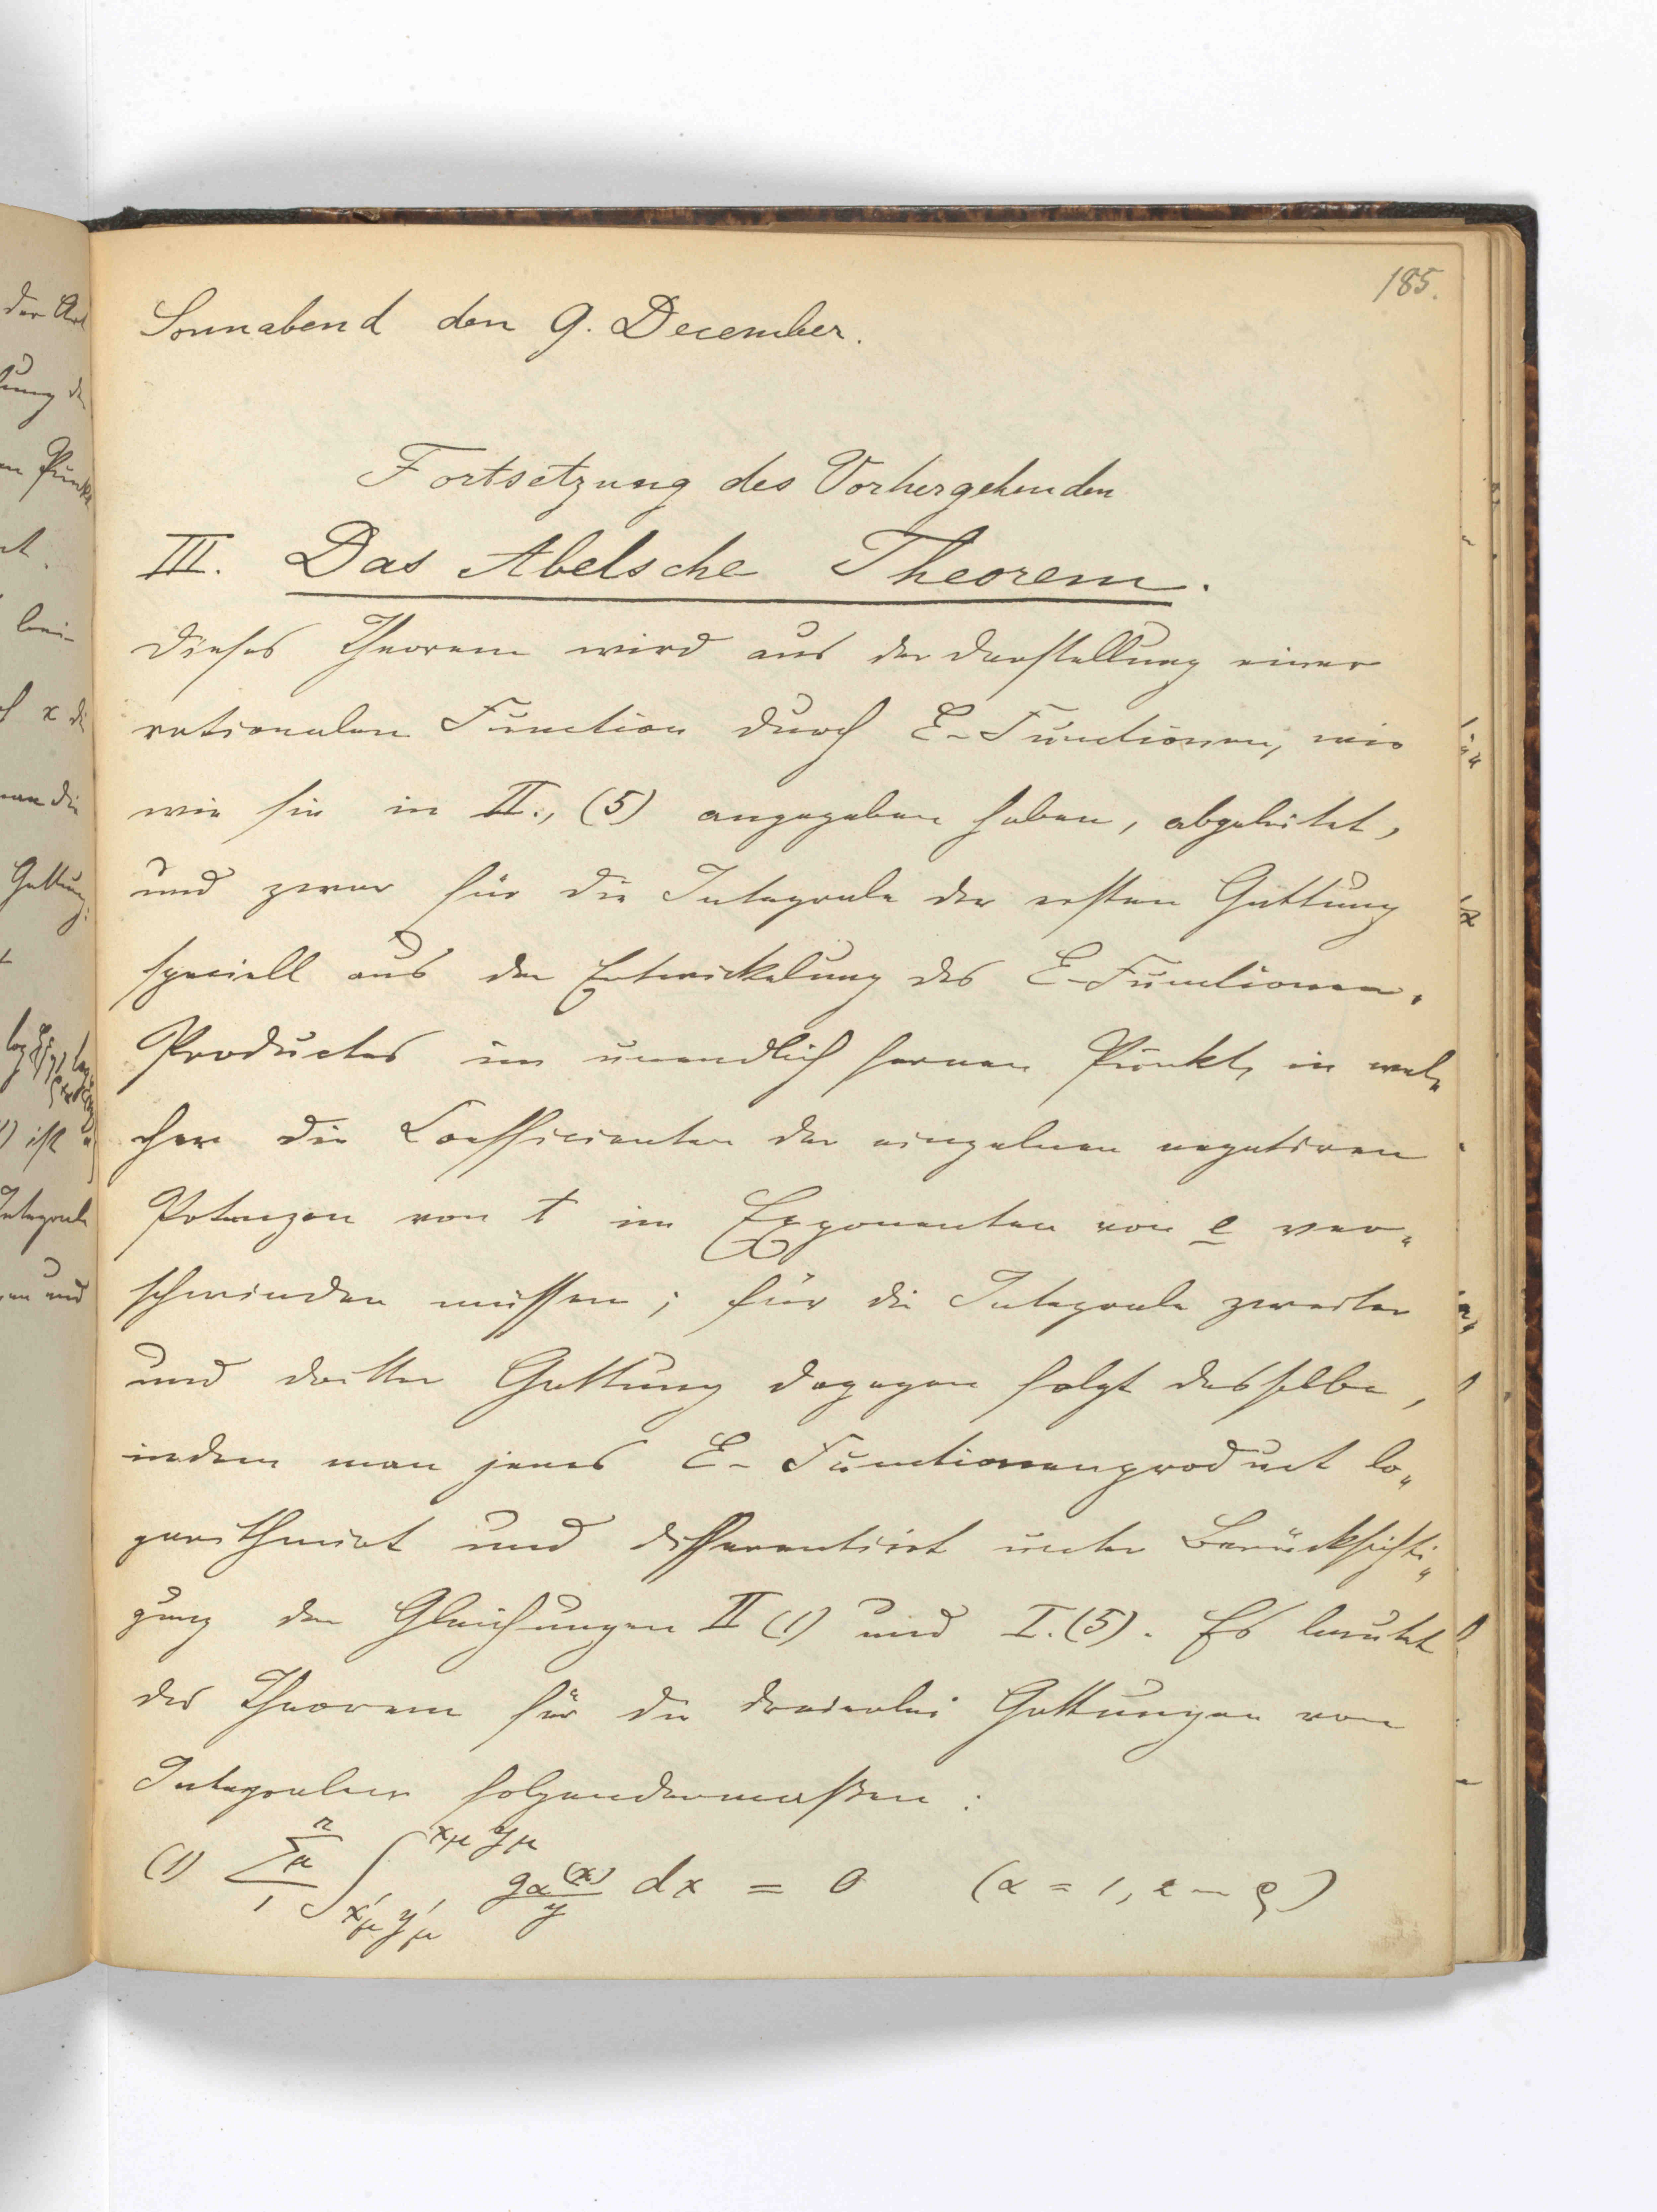 185.
Sonnabend den 9. December.
Fortsetzung des Vorhergehenden
III. Das Abelsche Theorem.
Dieses Theorem wird aus der Darstellung einer
rationalen Function durch E-Functionen, wie
wir sie in II., (5) angegeben haben, abgeleitet,
und zwar für die Integrale der ersten Gattung
speciell aus der Entwickelung des E-Functionen-
Productes im unendlich fernen Punkt, in wel-
cher die Coefficienten der einzelnen negativen
Potenzen von t im Exponenten von e ver-
schwinden müssen; für die Integrale zweiter
und dritter Gattung dagegen folgt dasselbe,
indem man jenes E-Functionenproduct lo-
garithmirt und differentiirt unter Berücksichti-
gung der Gleichungen II (1) und I.(5). Es lautet
das Theorem für die dreierlei Gattungen von
Integralen folgendermaßen:
(1) \sum_1^n{}_\mu \int_{x'_\mu y'_\mu}^{x_\mu y_\mu} \frac{g_\alpha(x)}{y} dx = 0 (α = 1, 2 – ρ)